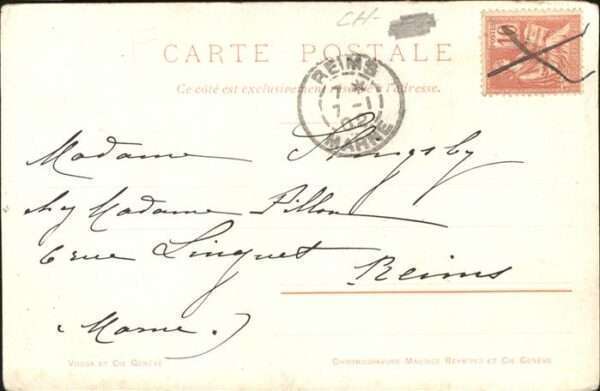 CH-
CARTE POSTALE
Ce côté est exclusivement réservé à l'adresse.
10
REIMS
7 *
7 -1
02
MARNE
Madame Slingsby
chez Madame Pillon
6 rue Linguet
Reims
(Marne.)
VOUGA ET CIE GENÈVE
CHROMOGRAVURE MAURICE REYMOND ET CIE GENÈVE